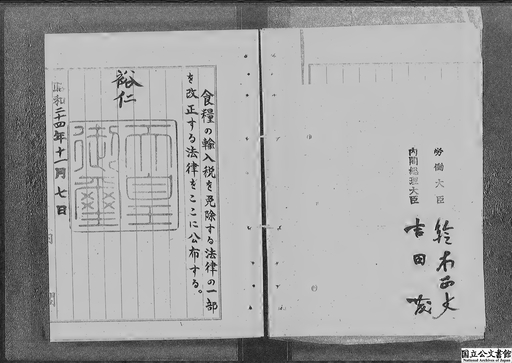 食糧の輸入税を免除する法律の一部
を改正する法律をここに公布する。
裕仁
天皇
御璽
昭和二十四年十一月七日
内閣総理大臣 吉田茂
労働大臣 鈴木正文
国立公文書館
National Archives of Japan